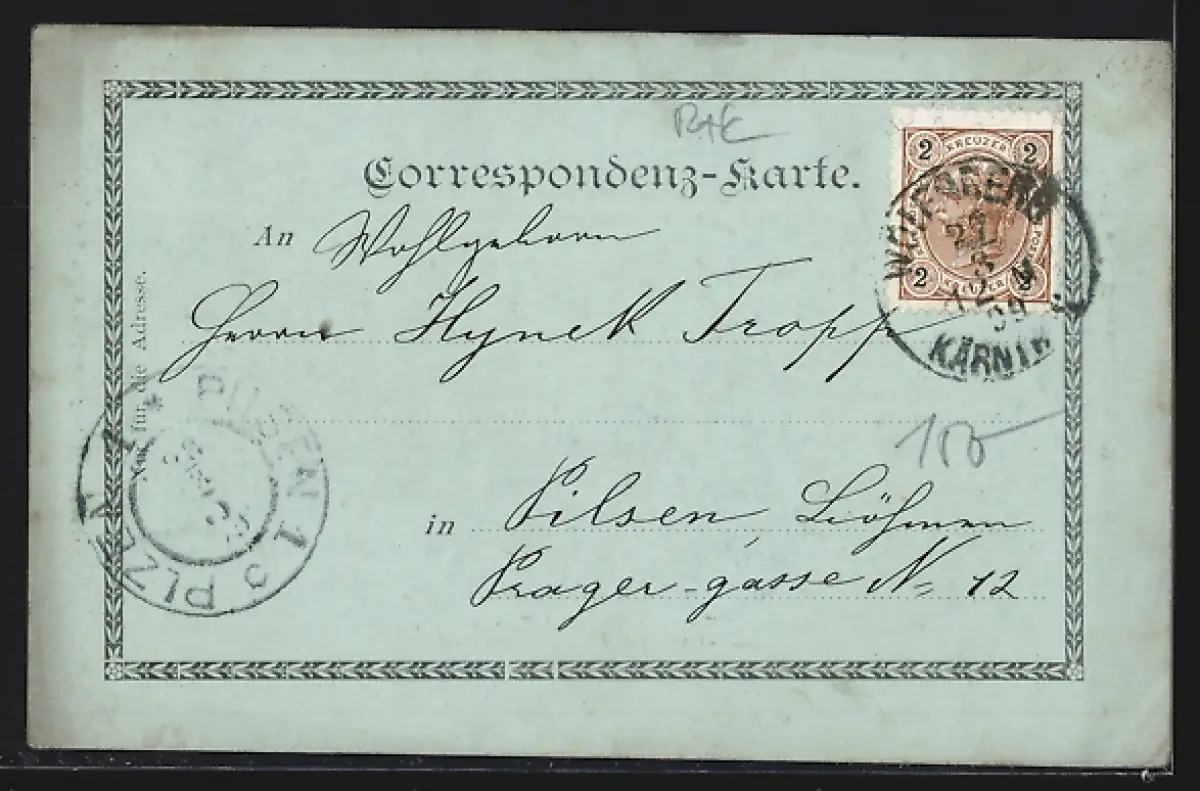 Correspondenz-Karte.
An Wohlgeborn
Herrn Hynek Tropp
in Pilsen Böhmen
Prager-gasse N= 12
Nur für die Adresse.
2 KREUZER 2
2 KREUZER
WOLFSBERG
KÄRNT
PILSEN 1
PLZEŇ 1